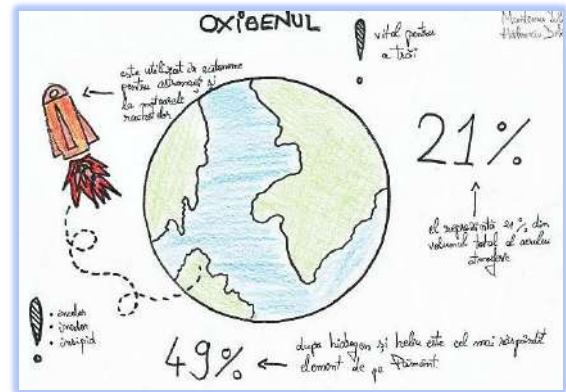 OXIGENUL
vital pentru
a trăi
este utilizat in
pentru astronauți și
la motoarele
rachetelor
21%
el reprezintă 21% din
volumul total al aerului
• incolor
• inodor
• insipid
49%
după hidrogen și heliu este cel mai răspândit
element de pe Pământ.